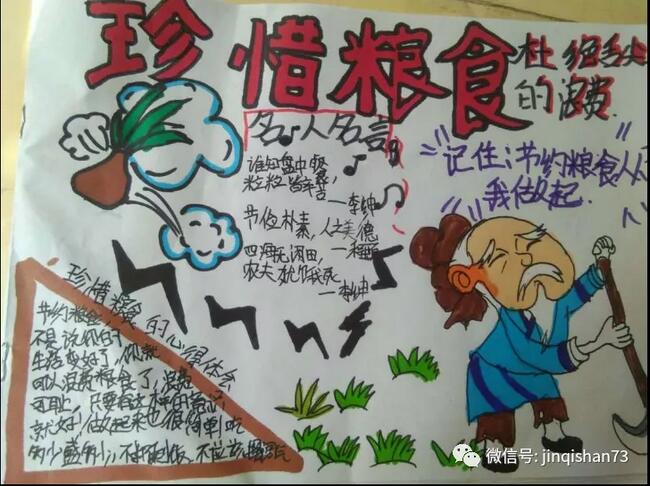 珍惜粮食
杜绝舌尖
的浪费
名人名言
谁知盘中餐,
粒粒皆辛苦
—李绅
节俭朴素,人之美德
四海无闲田,
农夫犹饿死
—李绅
记住:节约粮食从
我做起.
珍惜粮食的心得体会
节约粮食,
不是说你的
生活变好了,你就
可以浪费粮食了,浪费
可耻,只要有这种意识
就好,做起来也很简单:吃
多少盛多少,不扔剩饭,不应该
微信号: jinqishan73